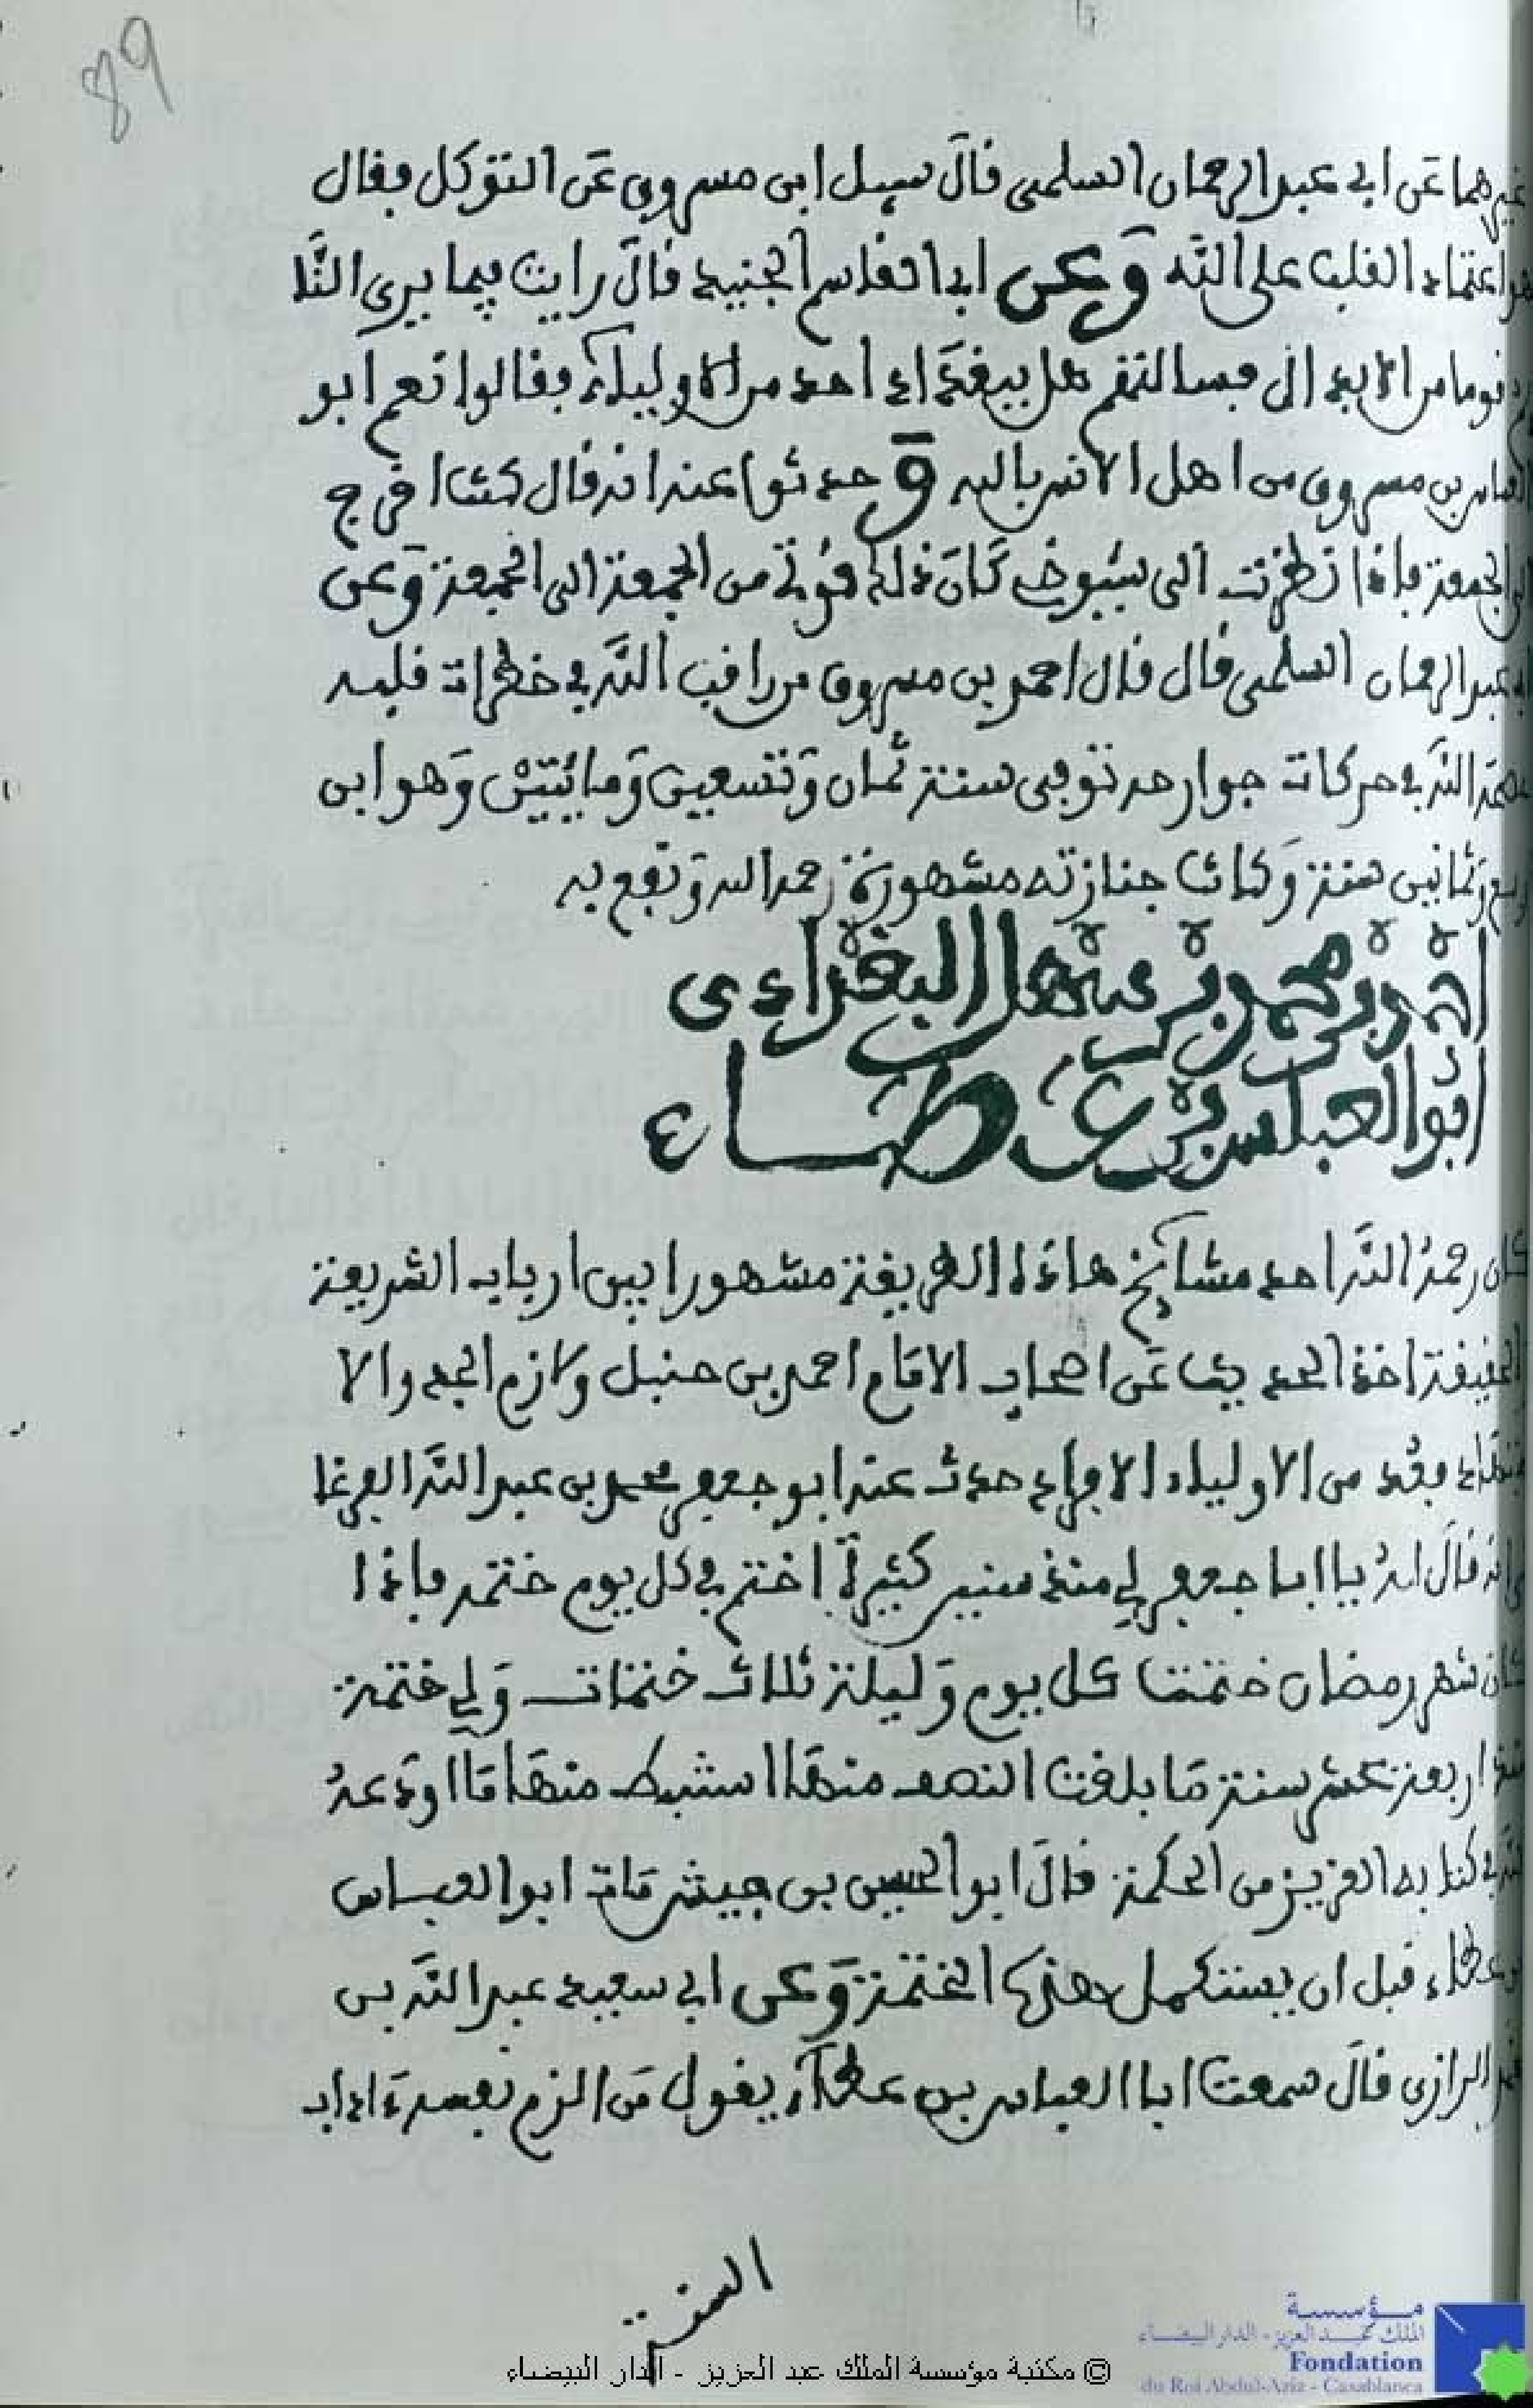 89
غيرهما عن ابي عبد الرحمان السلمي قال سيل ابن مسروق عن التوكل فقال
اعتماد القلب على الله وعن ابي القاسم الجنيد قال رايت فيما يرى النا
قوما من الابدال فسالتهم هل ببغداد احد من الاولياء فقالوا نعم ابو
بن مسروق من اهل الانس بالله وحدثوا عنه انه قال كنت اخرج
الجمعة فاذا نظرت الى شيوخ كان ذلك قوتي من الجمعة الى الجمعة وعن
عبد الرحمان السلمي قال قال احمد بن مسروق من راقب الله في خطرات قلبه
الله في حركات جوارحه توفي سنة ثمان وتسعين ومائتين وهو ابن
وثمانين سنة وكانت جنازته مشهورة رحمه الله ونفع به
احمد بن محمد بن سهل البغدادي
ابو العباس بن عطاء
كان رحمه الله احد مشائخ هاذه الطريقة مشهورا بين ارباب الشريعة
الحقيقة اخذ الحديث عن اصحاب الامام احمد بن حنبل ولازم الجد والا
فقد من الاولياء الافراد حدث عنه ابو جعفر محمد بن عبد الله الفرغا
انه قال له يا ابا جعفر لي منذ سنين كثيرة اختم في كل يوم ختمه فاذا
كان شهر رمضان ختمت كل يوم وليلة ثلاث ختمات ولي ختمة
منذ اربعة عشر سنة ما بلغت النصف منها استنبط منها ما اودعه
الله في كتابه العزيز من الحكمة قال ابو الحسين بن حبيش مات ابو العباس
بن عطاء قبل ان يستكمل هذه الختمة وعن ابي سعيد عبد الله بن
الرازي قال سمعت ابا العباس بن عطاء يقول من الزم نفسه ءاداب
السنة
© مكتبة مؤسسة الملك عبد العزيز - الدار البيضاء
مؤسسة
الملك عبد العزيز - الدار البيضاء
Fondation
du Roi Abdul-Aziz - Casablanca